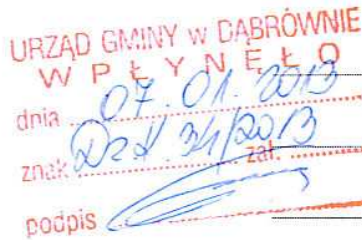 URZĄD GMINY w DĄBRÓWNIE
WPŁYNĘŁO
dnia 07.01.2013
znak 34/2013 zał.
podpis